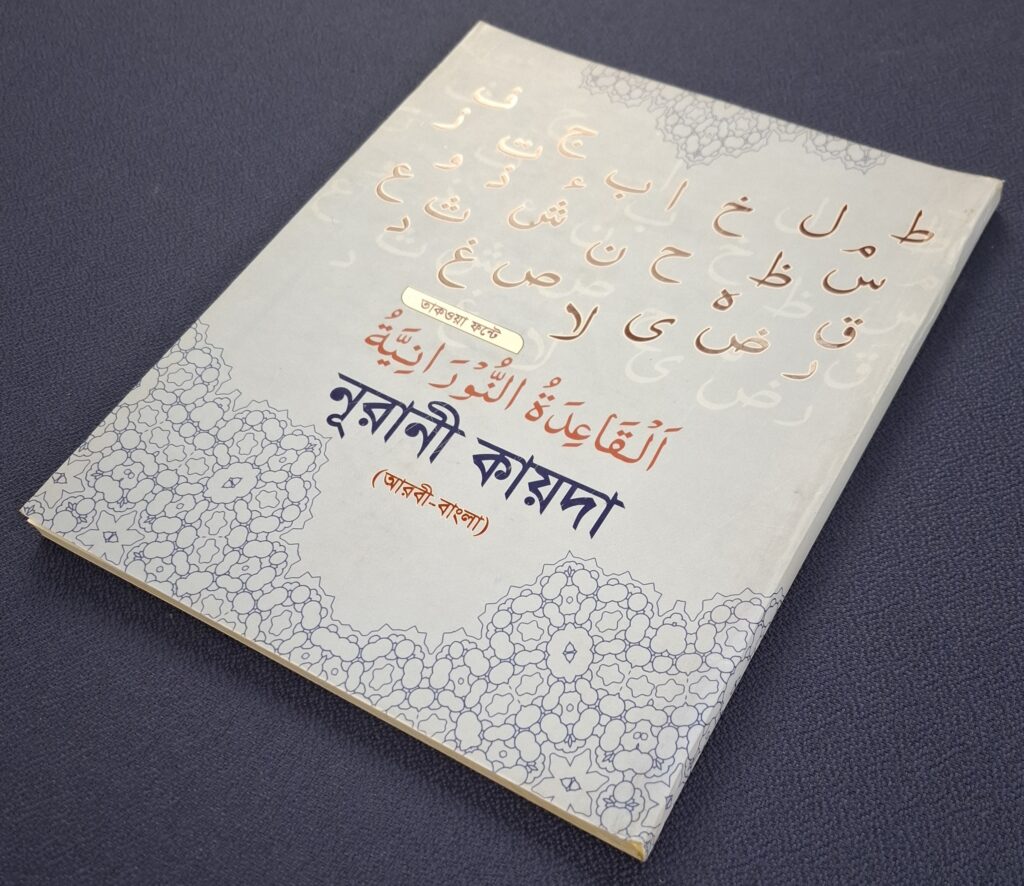 ط م ل خ ا ب ج ت ف ز
س ظ ح ن ء ش ذ و ث ع
ق ر ض ه ی لا ص غ د
তাকওয়া ফন্টে
اَلْقَاعِدَةُ النُّوْرَانِيَّةُ
নূরানী কায়দা
(আরবী-বাংলা)